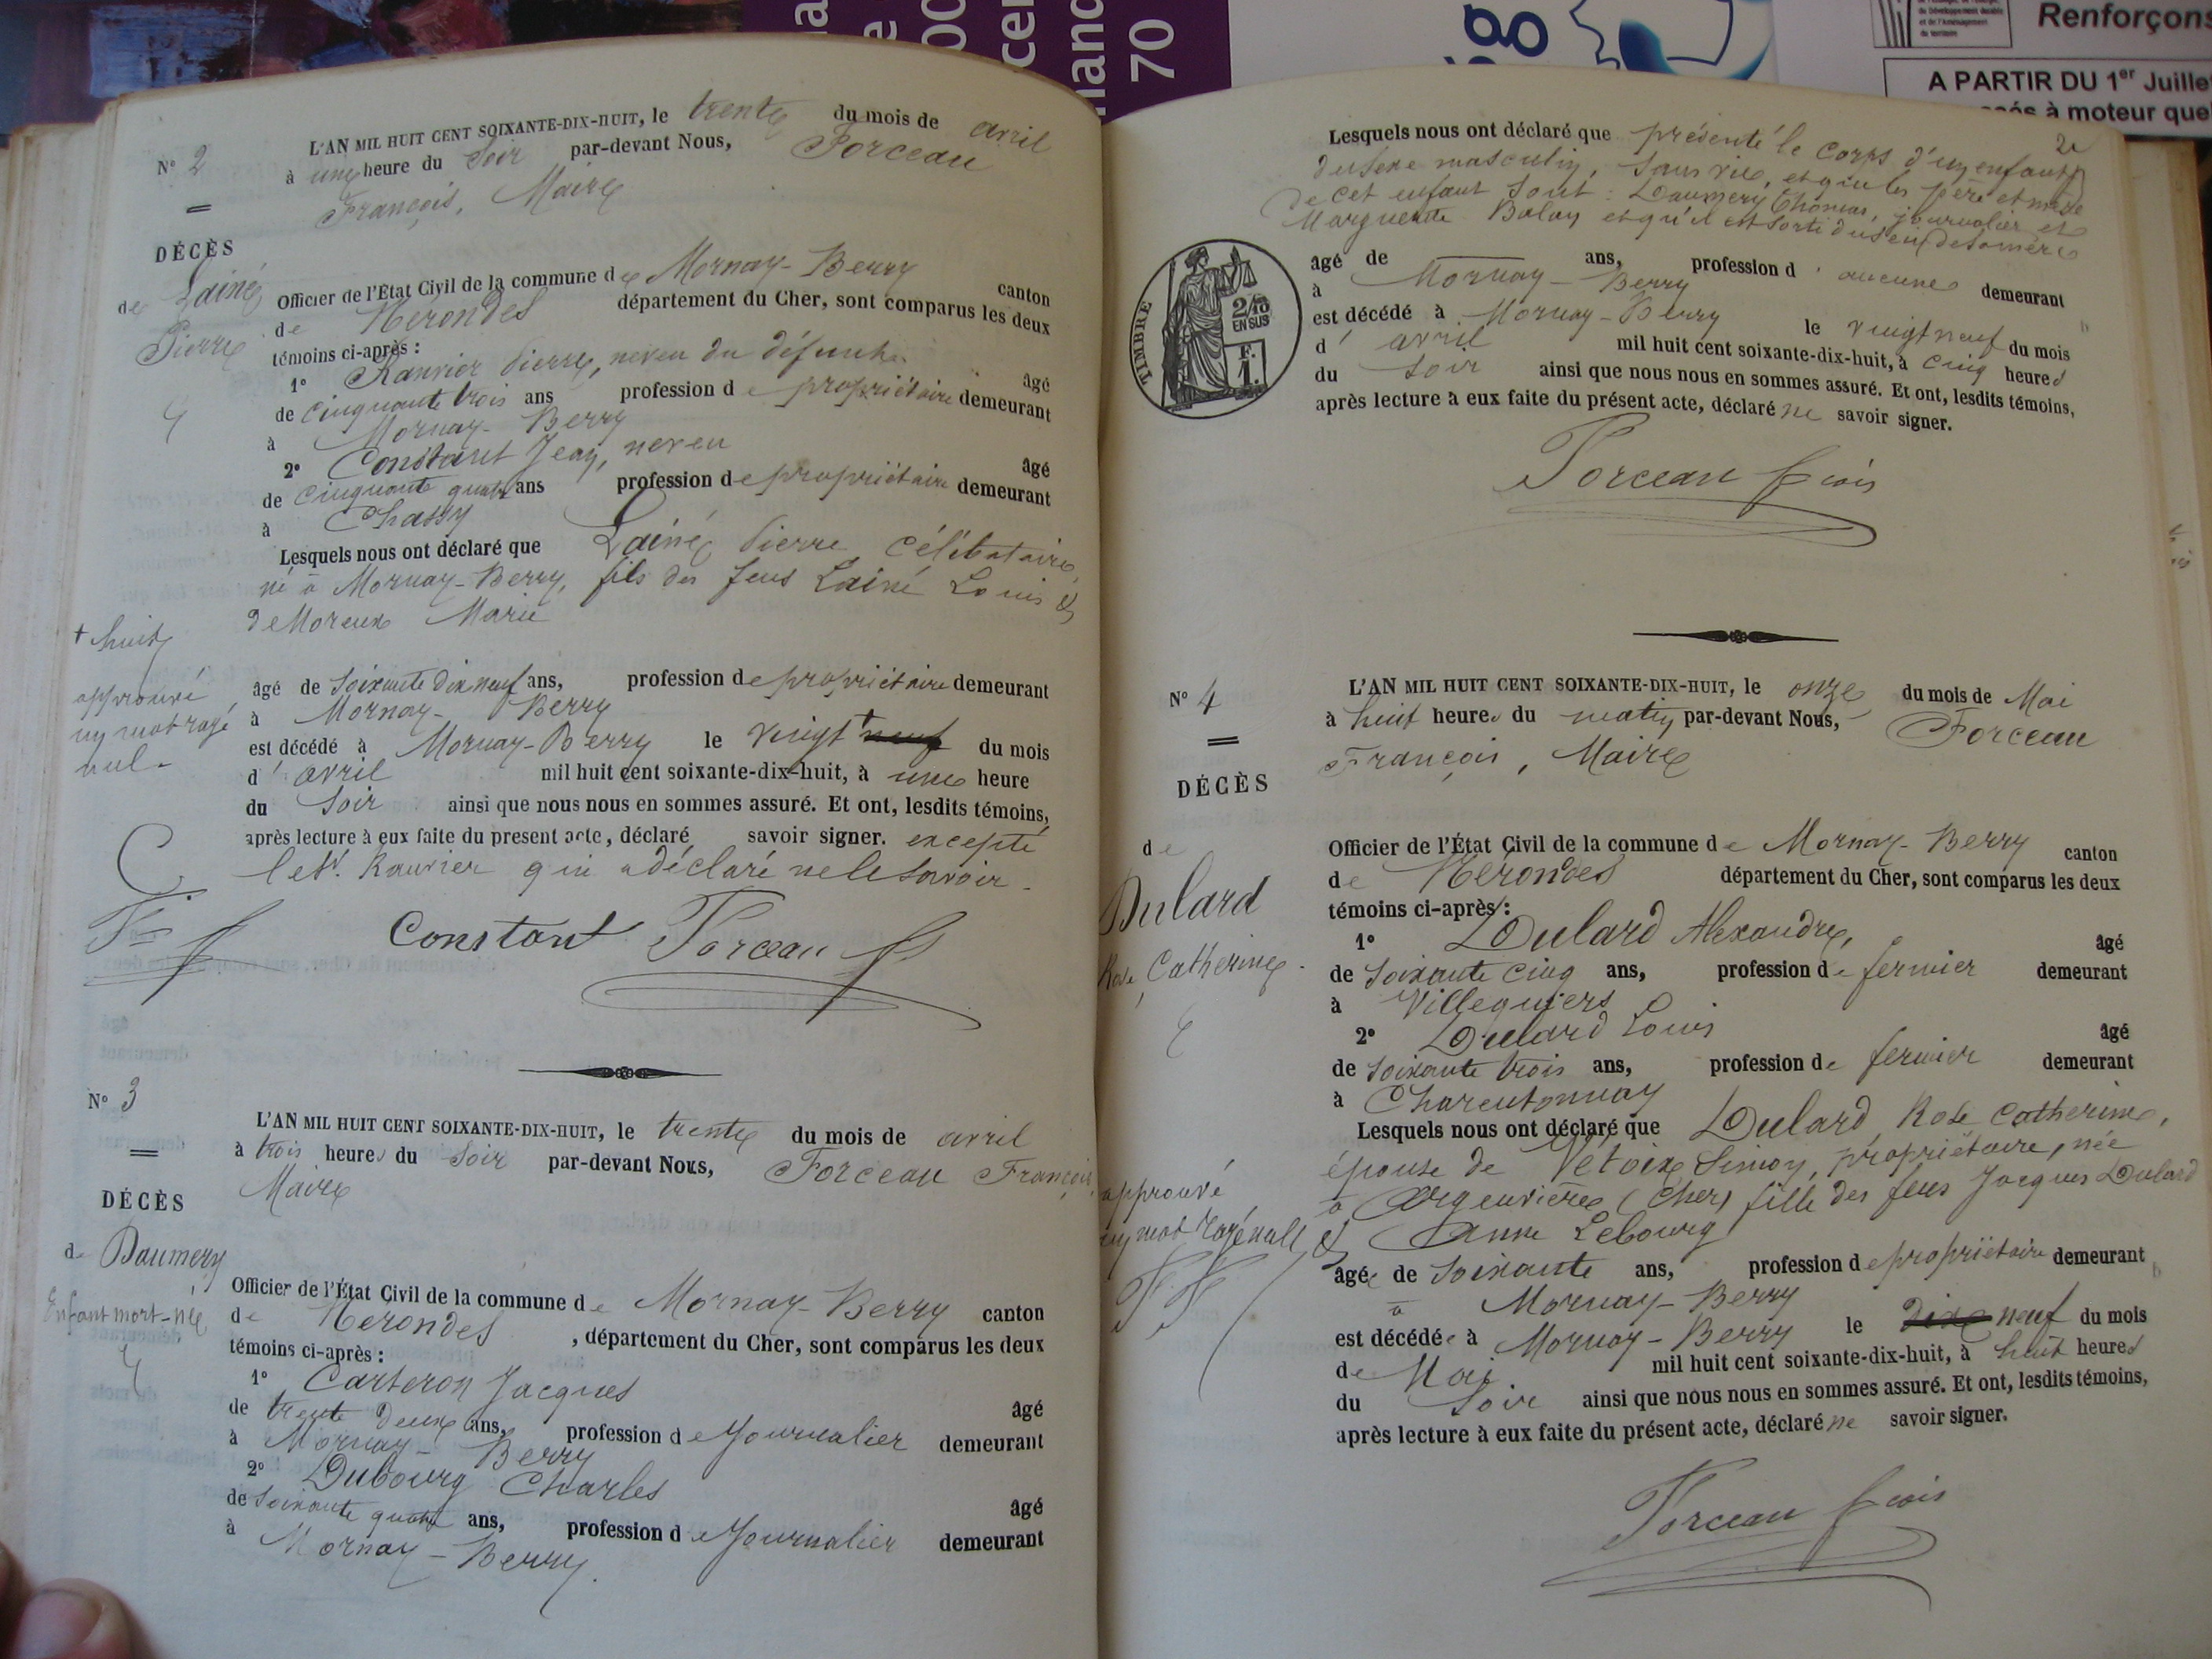 N° 2
L'AN MIL HUIT CENT SOIXANTE-DIX-HUIT, le trente du mois de avril
à une heure du Soir par-devant Nous, Forceau
François, Maire
DÉCÈS
de Lainé
Pierre
Officier de l'État Civil de la commune de Mornay-Berry canton
de Nérondes département du Cher, sont comparus les deux
témoins ci-après :
1° Ranvier Pierre, neveu du défunt âgé
de cinquante trois ans profession de propriétaire demeurant
à Mornay-Berry
2° Constant Jean, neveu âgé
de cinquante quatre ans profession de propriétaire demeurant
à Chassy
Lesquels nous ont déclaré que Lainé Pierre célibataire,
né à Mornay-Berry, fils des feus Lainé Louis &
de Moreux Marie
+ huit
approuvé
un mot rayé
nul
âgé de soixante dix neuf ans, profession de propriétaire demeurant
à Mornay-Berry
est décédé à Mornay-Berry le vingt + neuf du mois
d'avril mil huit cent soixante-dix-huit, à une heure
du Soir ainsi que nous nous en sommes assuré. Et ont, lesdits témoins,
après lecture à eux faite du présent acte, déclaré savoir signer. excepté
le Sr. Ranvier qui a déclaré ne le savoir.
C.
Constant Forceau
N° 3
L'AN MIL HUIT CENT SOIXANTE-DIX-HUIT, le trente du mois de avril
à trois heures du Soir par-devant Nous, Forceau François
Maire
DÉCÈS
de Daumery
Enfant mort-né
Officier de l'État Civil de la commune de Mornay-Berry canton
de Nérondes, département du Cher, sont comparus les deux
témoins ci-après :
1° Carteron Jacques âgé
de trente deux ans, profession de Journalier demeurant
à Mornay-Berry
2° Dubourg Charles âgé
de soixante quatre ans, profession de Journalier demeurant
à Mornay-Berry.
2
Lesquels nous ont déclaré que présenté le corps d'un enfant
du sexe masculin, sans vie, et que les père et mère
de cet enfant sont : Daumery Thomas, journalier et
Marguerite Balay et qu'il est sorti du sein de sa mère
TIMBRE
2/10
EN SUS
F.
1.
âgé de ans, profession d'aucune demeurant
à Mornay-Berry
est décédé à Mornay-Berry le vingt neuf du mois
d'avril mil huit cent soixante-dix-huit, à cinq heures
du Soir ainsi que nous nous en sommes assuré. Et ont, lesdits témoins,
après lecture à eux faite du présent acte, déclaré ne savoir signer.
Forceau fçois
N° 4
L'AN MIL HUIT CENT SOIXANTE-DIX-HUIT, le onze du mois de Mai
à huit heures du matin par-devant Nous, Forceau
François, Maire
DÉCÈS
de
Dulard
Rose Catherine
Officier de l'État Civil de la commune de Mornay-Berry canton
de Nérondes département du Cher, sont comparus les deux
témoins ci-après :
1° Dulard Alexandre, âgé
de soixante cinq ans, profession de fermier demeurant
à Villequiers
2° Dulard Louis âgé
de soixante trois ans, profession de fermier demeurant
à Charentonnay
Lesquels nous ont déclaré que Dulard Rose Catherine,
épouse de Vétoix Simon, propriétaire, née
à Argenvières (Cher) fille des feus Jacques Dulard
& Anne Lebourg
approuvé
un mot rayé null
âgée de soixante ans, profession de propriétaire demeurant
à Mornay-Berry
est décédée à Mornay-Berry le dixe neuf du mois
de Mai mil huit cent soixante-dix-huit, à huit heures
du Soir ainsi que nous nous en sommes assuré. Et ont, lesdits témoins,
après lecture à eux faite du présent acte, déclaré ne savoir signer.
Forceau fçois
70
Renforçons
A PARTIR DU 1er Juillet
à moteur que